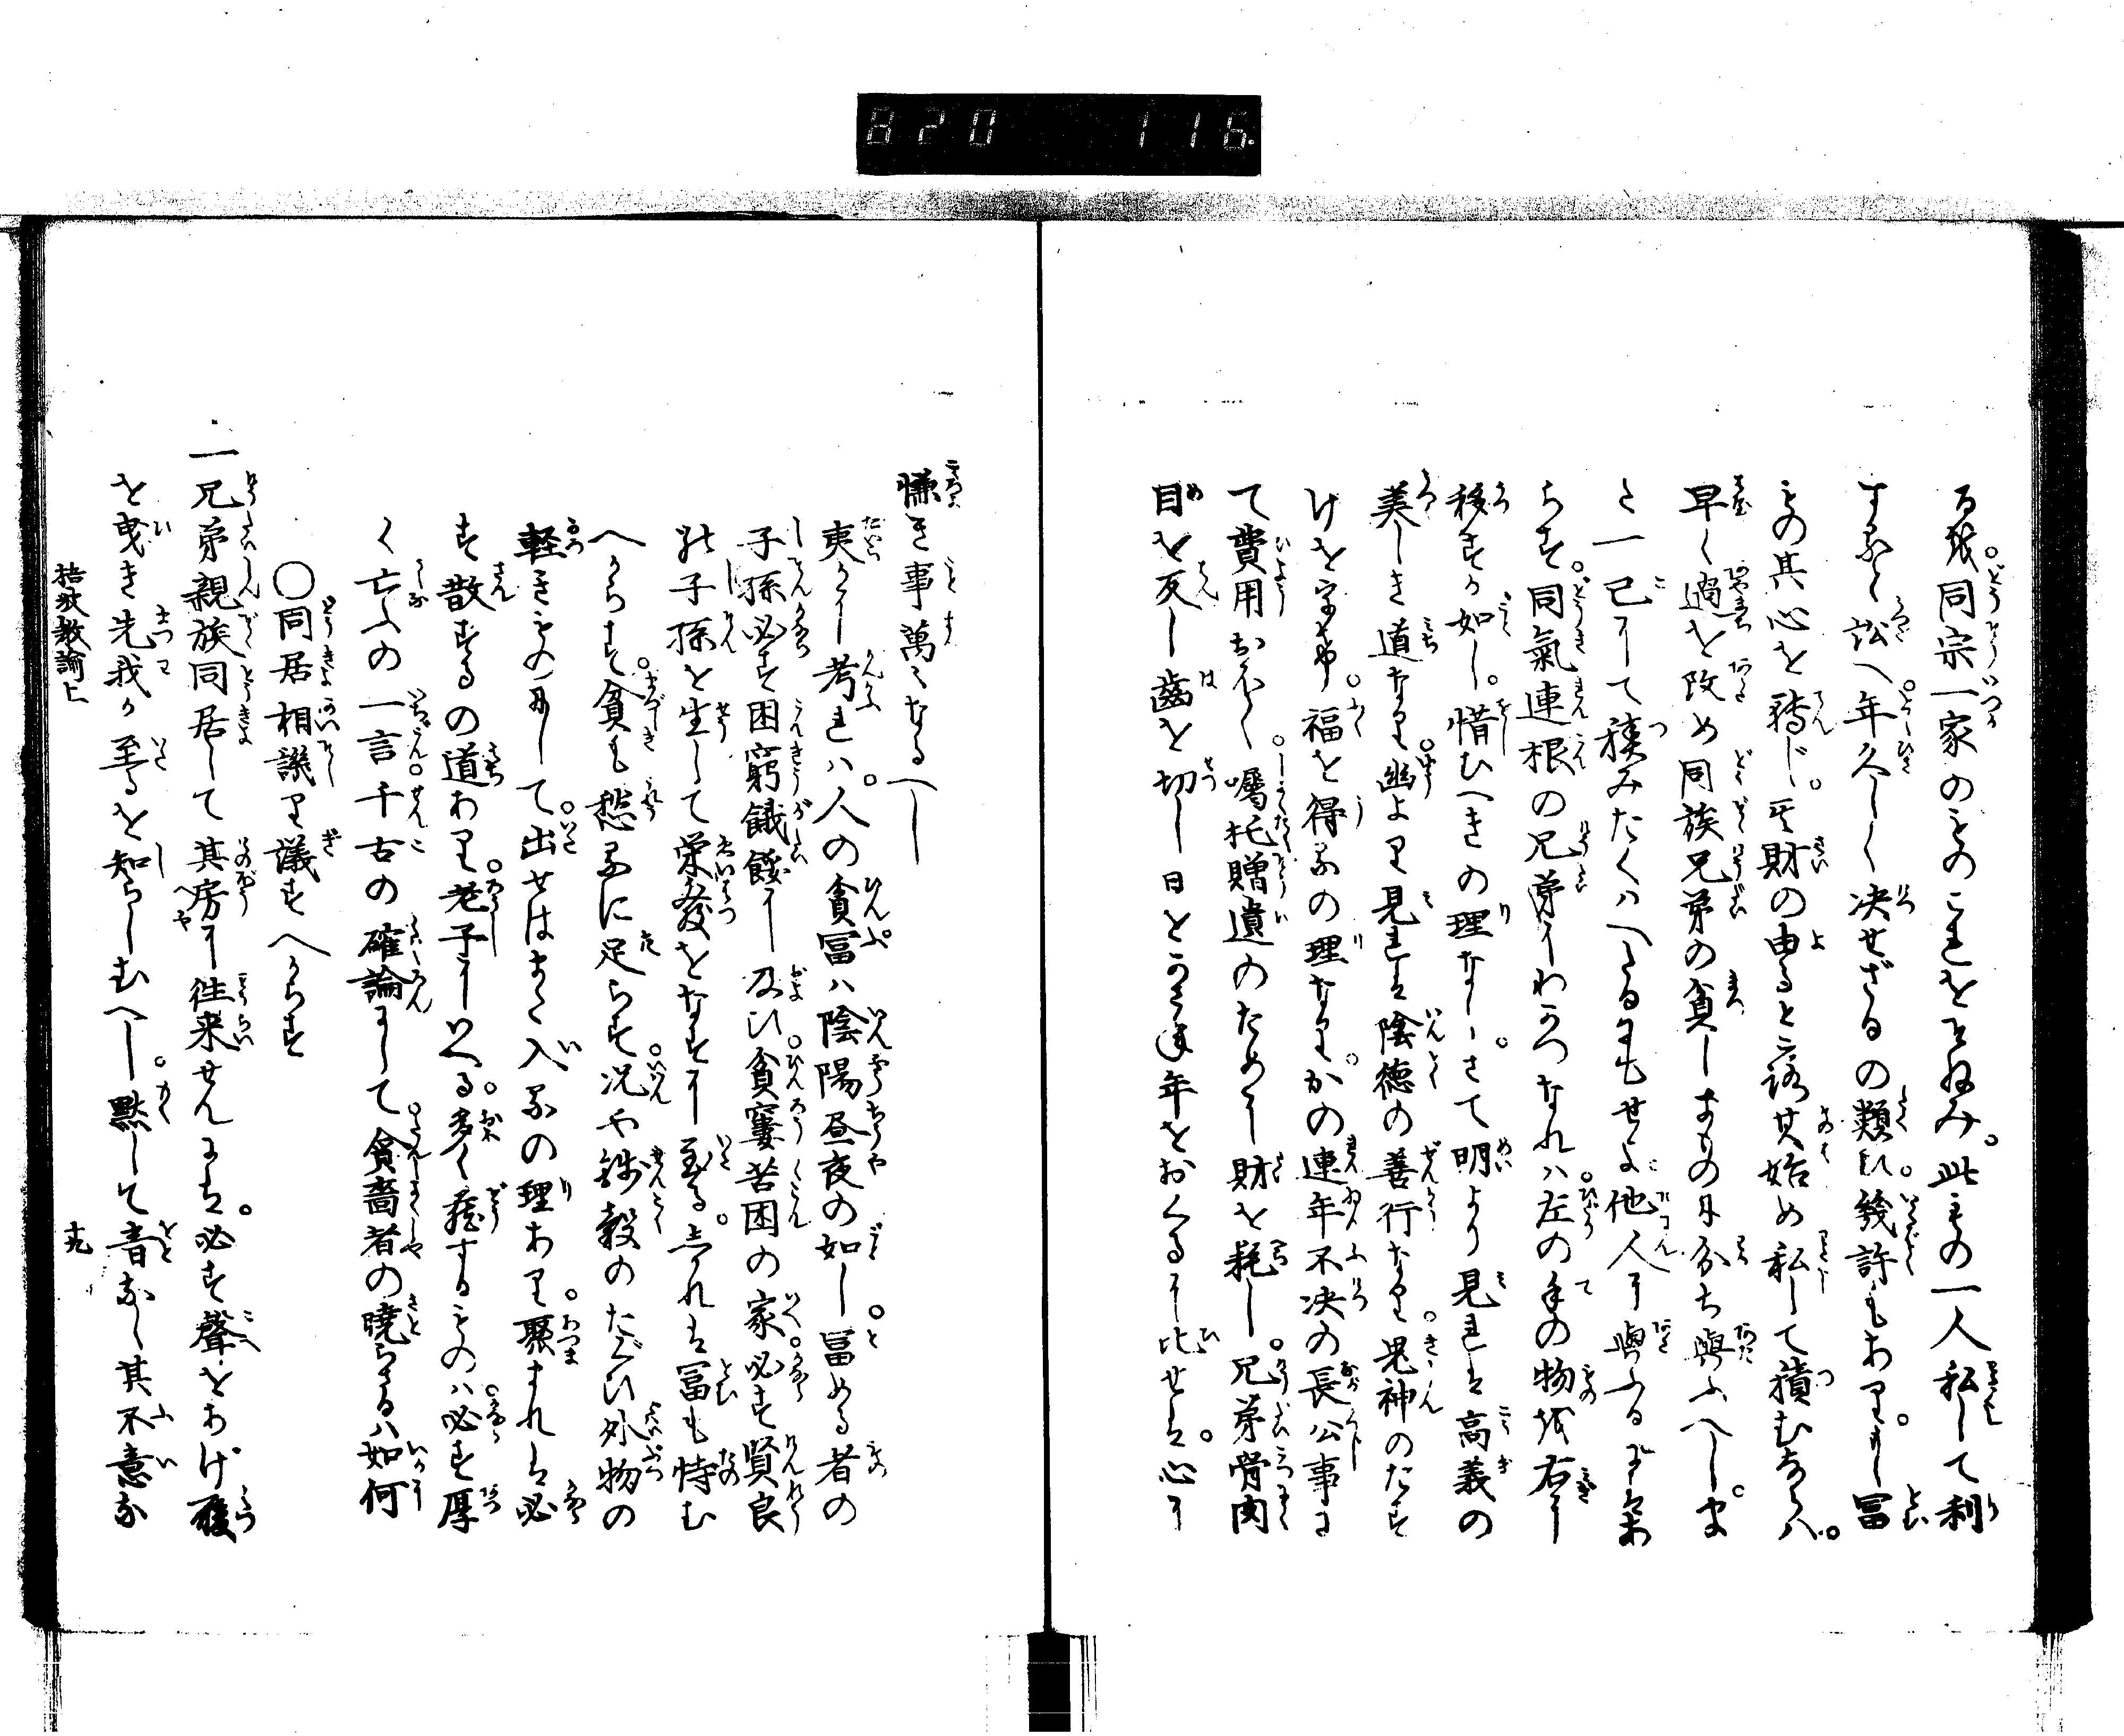 820 116
る哉。同宗一家のものこれをそねみ。此もの一人私して利
すると訟へ。年久しく決せざるの類ひ。幾許もあり。もし冨
もの其心を轉じ。其財の由ると認其始め私して積むならハ。
早く過を改め同族兄弟の貧しきものに分ち與ふへし。ま
た一己にて積みたくハへたるにもせよ他人に與ふるにあ
らす。同氣連根の兄弟にわかつなれハ。左の手の物を右に
移すか如し。惜むへきの理なし。さて明より見れは高義の
美しき道なり。幽より見れは陰徳の善行なり。鬼神のたす
けを蒙り。福を得るの理なり。かの連年不決の長公事に
て費用おほく。囑托贈遺のために財を耗し。兄弟骨肉
目を反し齒を切し日をかさね年をおくるに比せは。心に
慊き事萬々なるへし
夷かに考れハ。人の貧冨ハ陰陽昼夜の如し。冨める者の
子孫必す困窮餓餧に及ひ。貧窶苦困の家。必す賢良
の子孫を生して栄發をなすに至る。されは冨も恃む
へからす。貧も愁るに足らす。况や銭穀のたくひ外物の
軽きものにして。出せはまた入るの理あり。聚まれは必
す散するの道あり。老子にいへる。多く蔵するものハ。必す厚
く亡ふの一言。千古の確論にして。貪嗇者の曉らさるハ如何
〇同居相譏り議すへからす
一兄弟親族同居して其房に徃来せんには。必す聲をあけ履
を曳き先我か至るを知らしむへし。黙して音なく其不意な